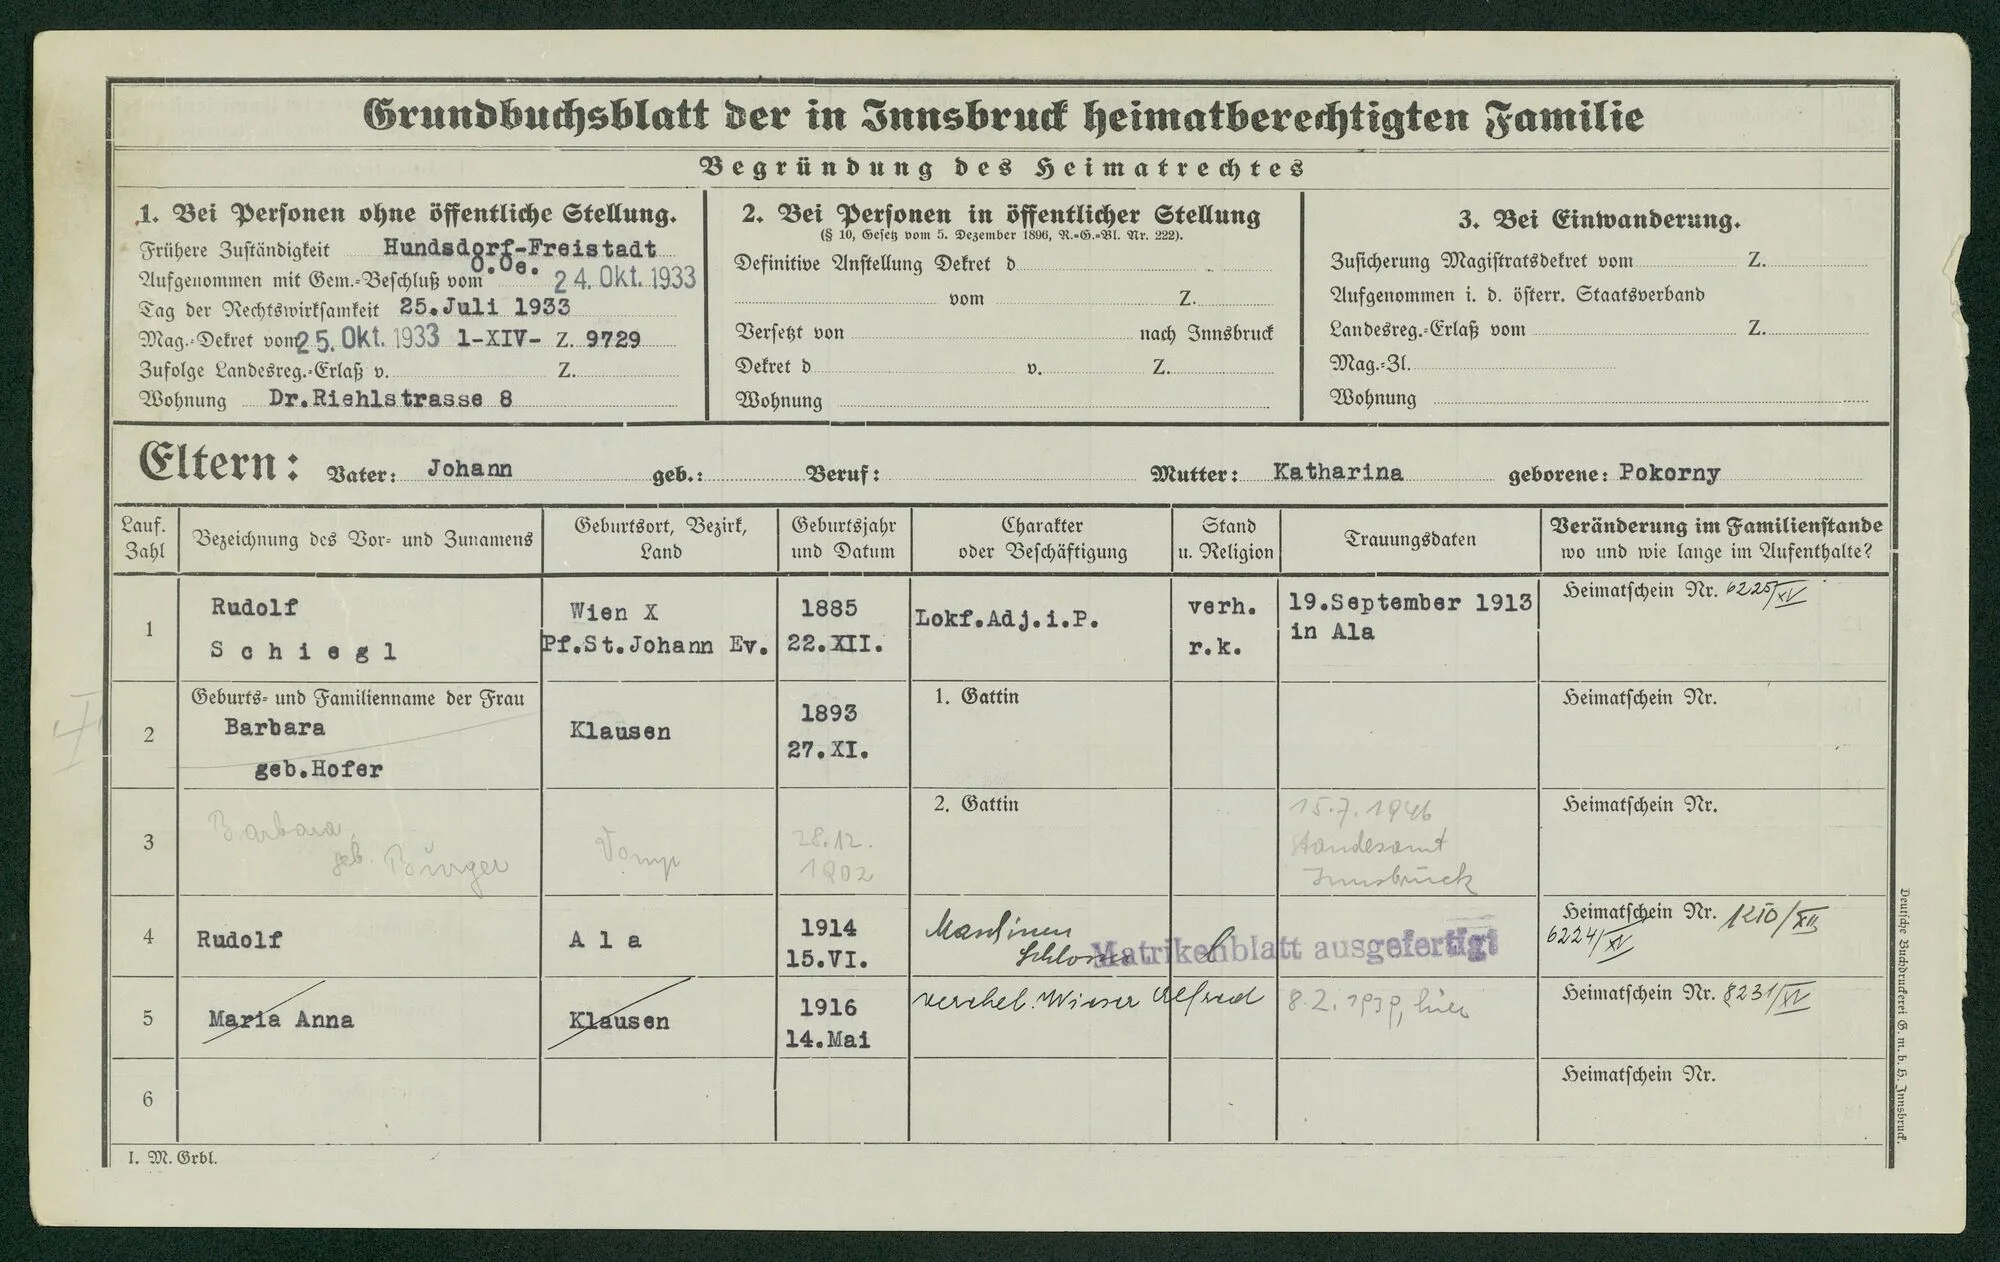 Grundbuchsblatt der in Innsbruck heimatberechtigten Familie
Begründung des Heimatrechtes
1. Bei Personen ohne öffentliche Stellung.
Frühere Zuständigkeit Hundsdorf-Freistadt
O.Oe.
Aufgenommen mit Gem.-Beschluß vom 24. Okt. 1933
Tag der Rechtswirksamkeit 25.Juli 1933
Mag.-Dekret vom 25. Okt. 1933 1-XIV- Z. 9729
Zufolge Landesreg.-Erlaß v. Z.
Wohnung Dr.Riehlstrasse 8
2. Bei Personen in öffentlicher Stellung
(§ 10, Gesetz vom 5. Dezember 1896, R.-G.-Bl. Nr. 222).
Definitive Anstellung Dekret d
vom Z.
Versetzt von nach Innsbruck
Dekret d v. Z.
Wohnung
3. Bei Einwanderung.
Zusicherung Magistratsdekret vom Z.
Aufgenommen i. d. österr. Staatsverband
Landesreg.-Erlaß vom Z.
Mag.-Zl.
Wohnung
Eltern: Vater: Johann geb.: Beruf: Mutter: Katharina geborene: Pokorny
Lauf. Zahl
Bezeichnung des Vor- und Zunamens
Geburtsort, Bezirk, Land
Geburtsjahr und Datum
Charakter oder Beschäftigung
Stand u. Religion
Trauungsdaten
Veränderung im Familienstande
wo und wie lange im Aufenthalte?
1
Rudolf
Schiegl
Wien X
Pf.St.Johann Ev.
1885
22.XII.
Lokf.Adj.i.P.
verh.
r.k.
19.September 1913
in Ala
Heimatschein Nr. 6225/XV
2
Geburts- und Familienname der Frau
Barbara
geb.Hofer
Klausen
1893
27.XI.
1. Gattin
Heimatschein Nr.
3
Barbara
geb. Bürger
Vomp
28.12.
1902
2. Gattin
15.7.1946
Standesamt
Innsbruck
Heimatschein Nr.
4
Rudolf
Ala
1914
15.VI.
Maschinen
Schlosser
Matrikenblatt ausgefertigt
Heimatschein Nr. 1210/XII
6224/XV
5
Maria Anna
Klausen
1916
14.Mai
verehel. Wieser Alfred
8.2.1939, hier
Heimatschein Nr. 8231/XV
6
Heimatschein Nr.
I. M. Grbl.
Deutsche Buchdruckerei G. m. b. H. Innsbruck.